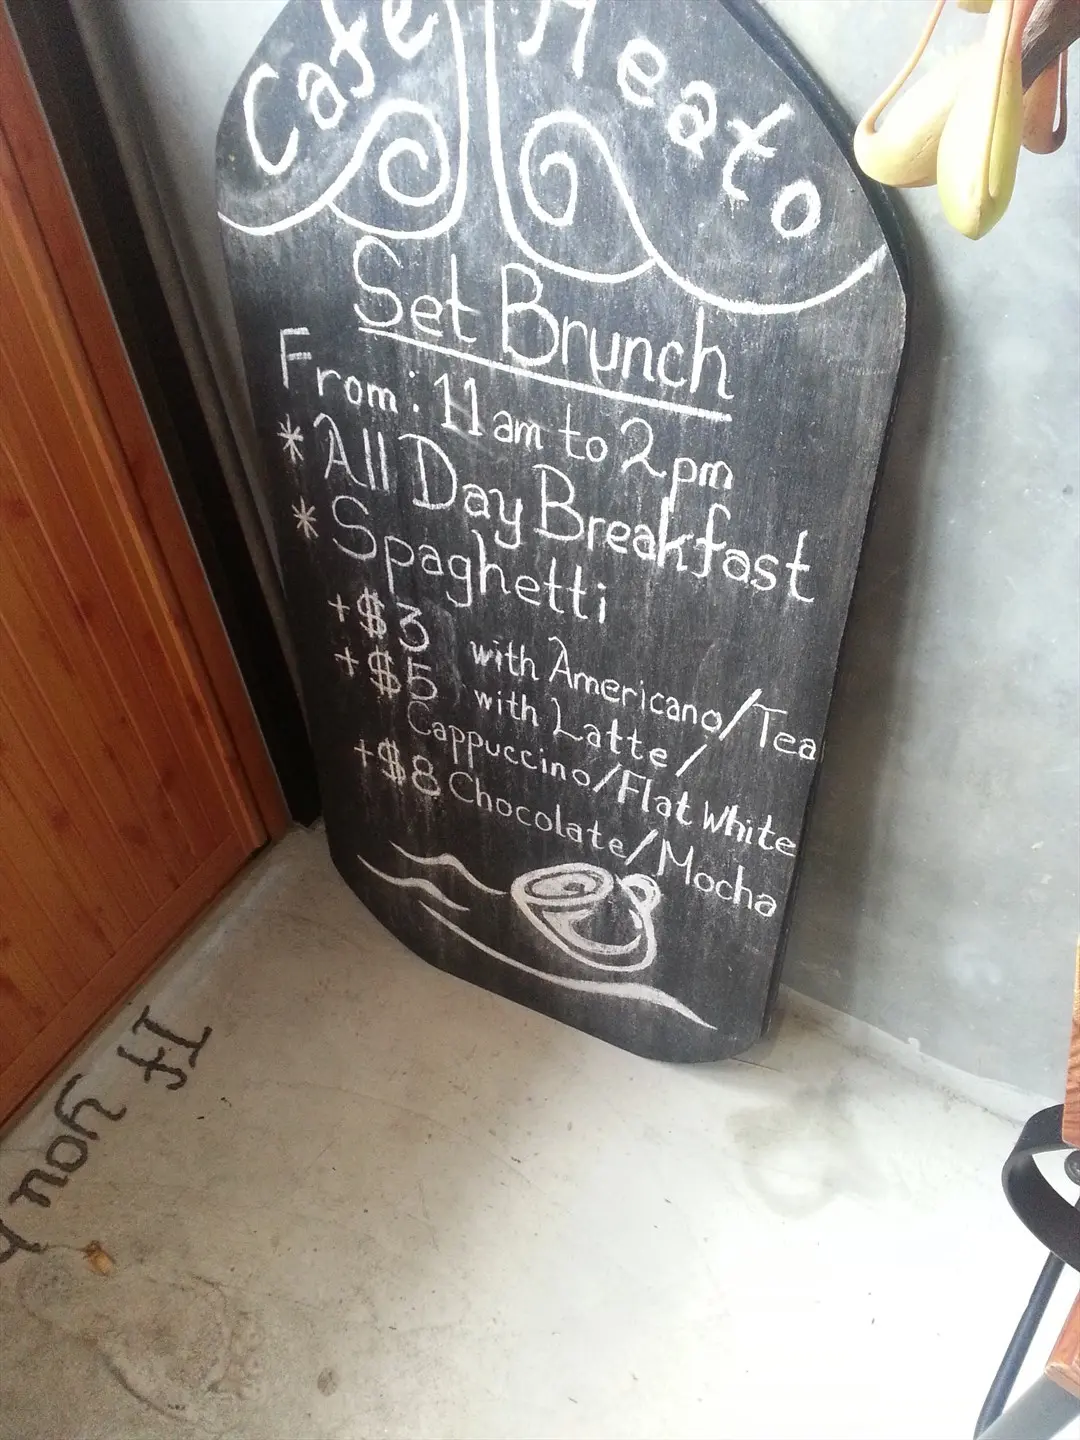 Cafe Meato
Set Brunch
From: 11am to 2pm
* All Day Breakfast
* Spaghetti
+$3 with Americano/Tea
+$5 with Latte/
Cappuccino/Flat White
+$8 Chocolate/Mocha
If you